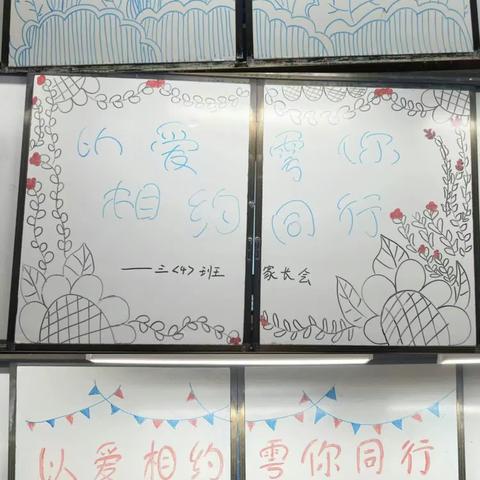 以爱 雩你
相约 同行
——三<4>班 家长会
以爱相约 雩你同行